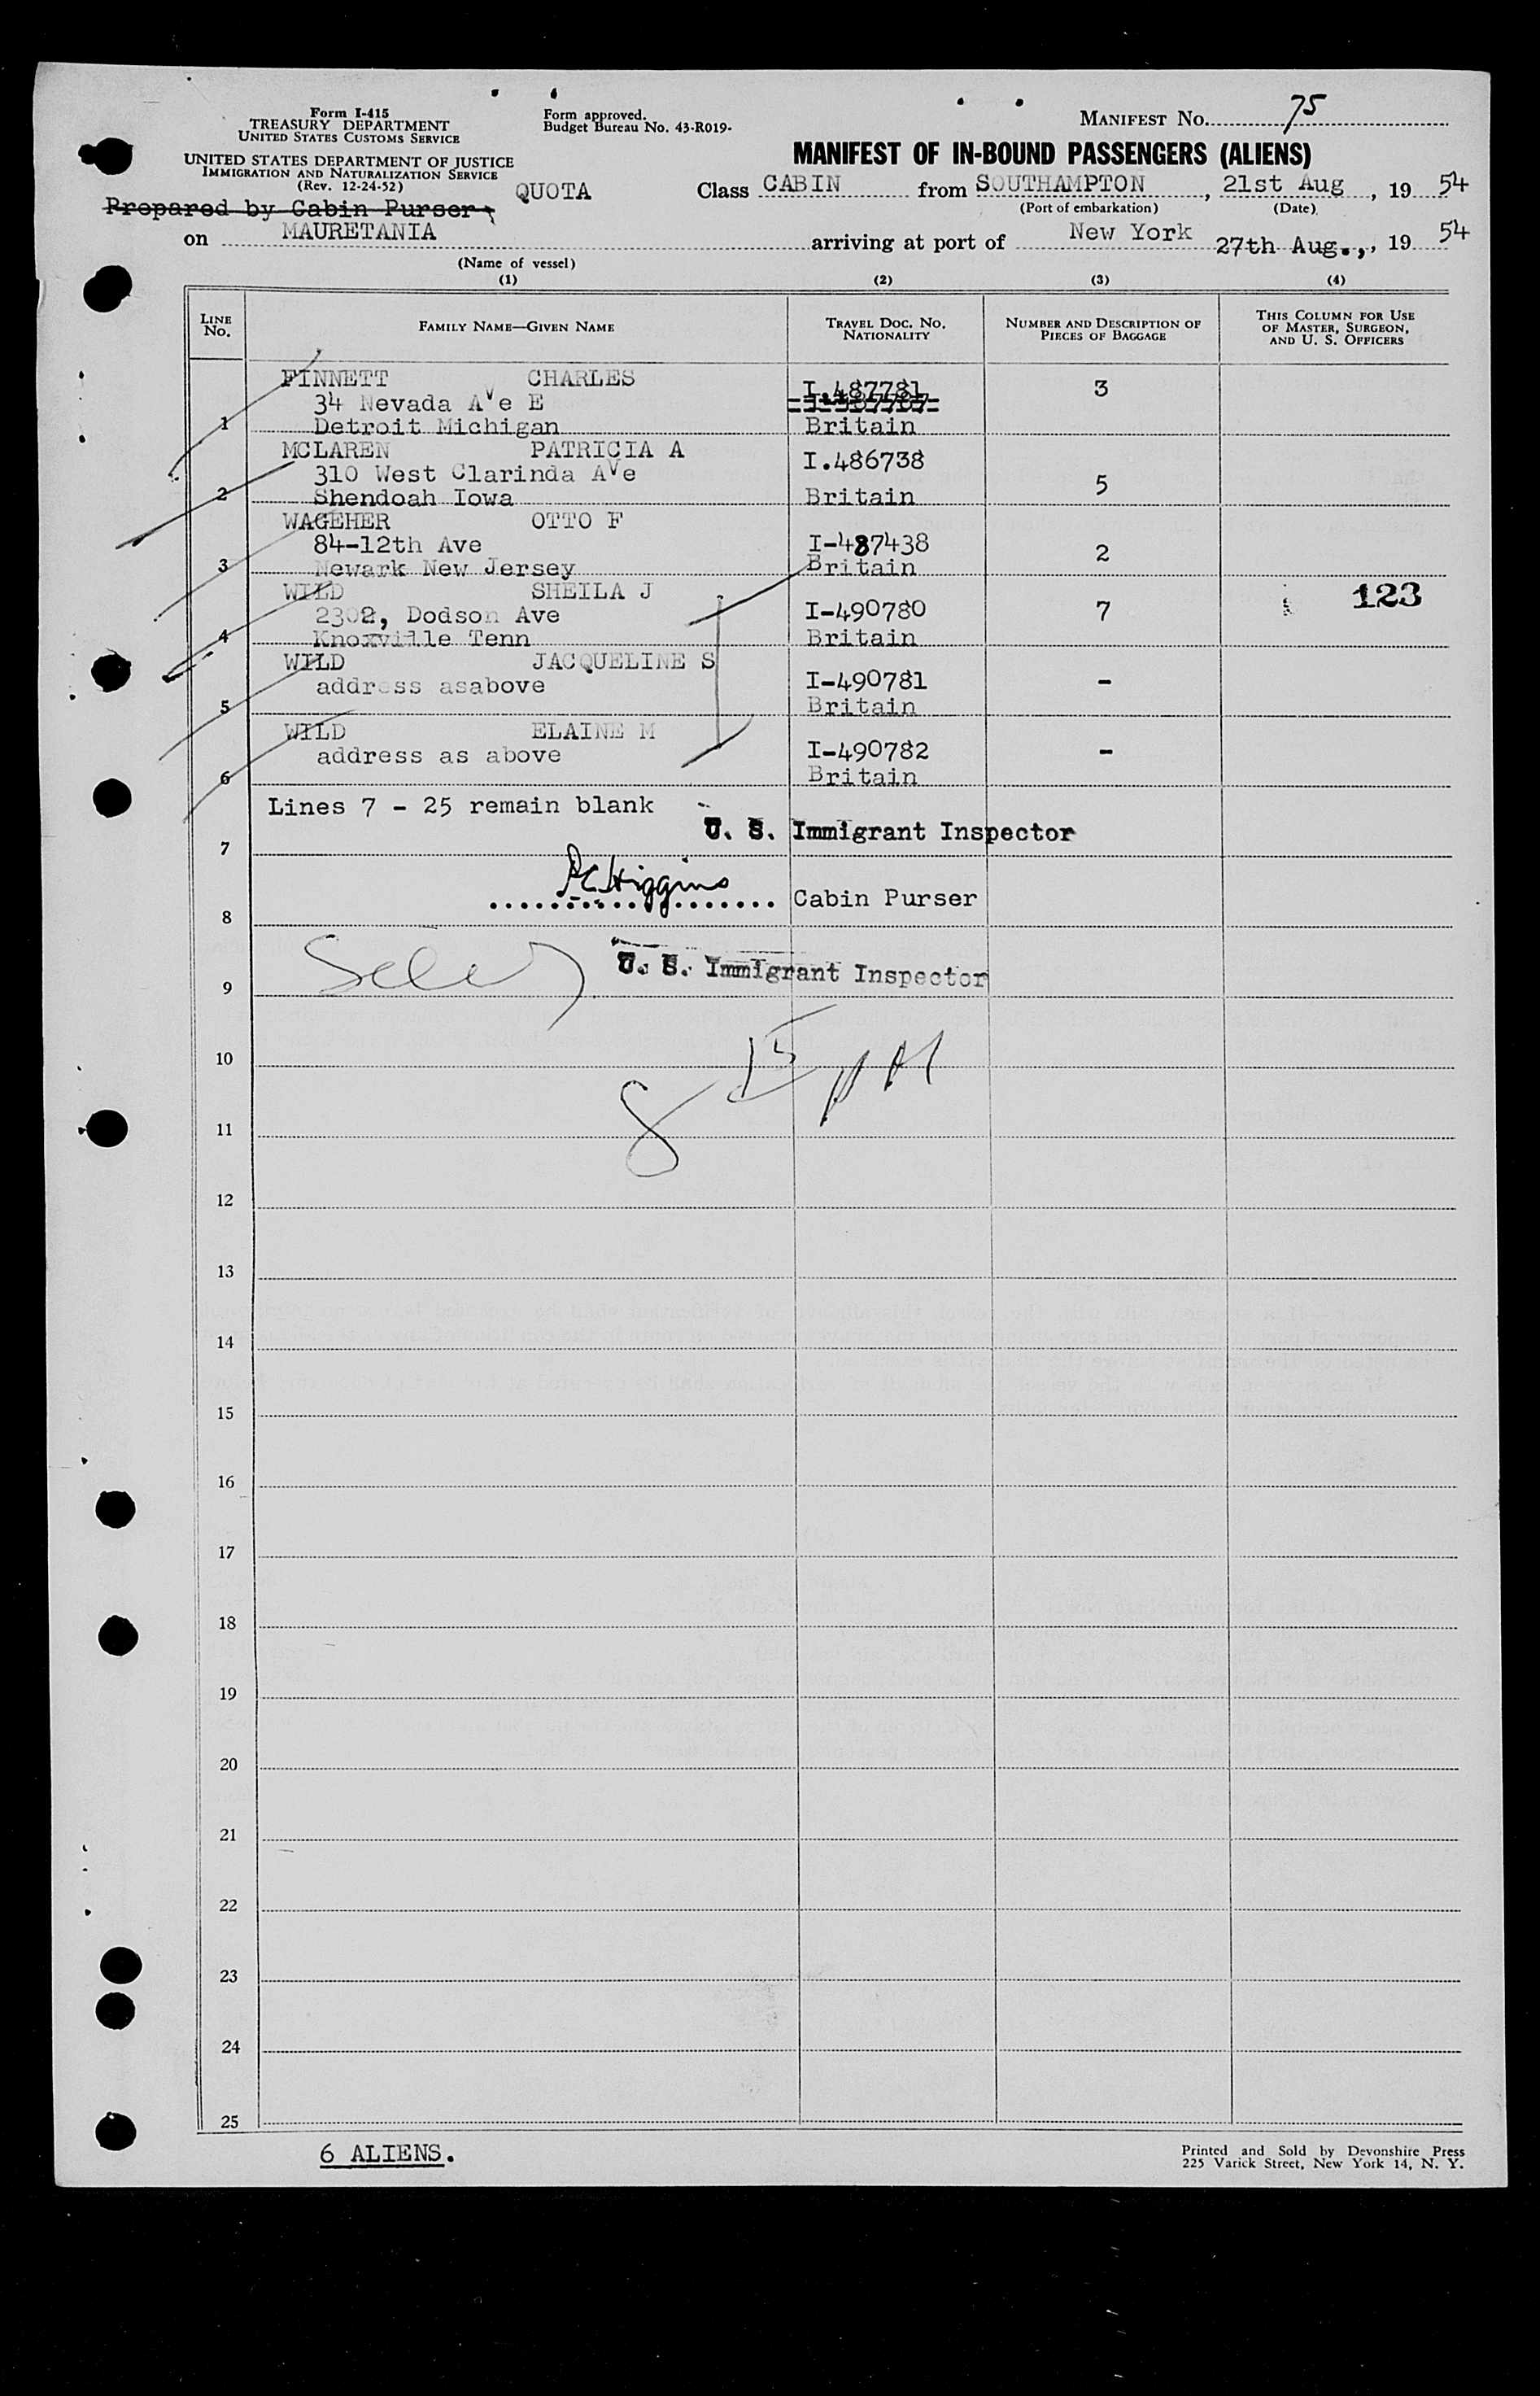 Form I-415
TREASURY DEPARTMENT
UNITED STATES CUSTOMS SERVICE
UNITED STATES DEPARTMENT OF JUSTICE
IMMIGRATION AND NATURALIZATION SERVICE
(Rev. 12-24-52)
Form approved.
Budget Bureau No. 43-R019-
MANIFEST NO. 75
MANIFEST OF IN-BOUND PASSENGERS (ALIENS)
Prepared by Cabin Purser
QUOTA Class CABIN from SOUTHAMPTON, 21st Aug, 19 54
(Port of embarkation) (Date)
on MAURETANIA arriving at port of New York 27th Aug., , 19 54
(Name of vessel)
(1) (2) (3) (4)
LINE NO. FAMILY NAME—GIVEN NAME TRAVEL DOC. NO. NATIONALITY NUMBER AND DESCRIPTION OF PIECES OF BAGGAGE THIS COLUMN FOR USE OF MASTER, SURGEON, AND U. S. OFFICERS
FINNETT CHARLES I.487781 3
34 Nevada Ave E
1 Detroit Michigan Britain
MCLAREN PATRICIA A I.486738
310 West Clarinda Ave 5
2 Shendoah Iowa Britain
WAGEHER OTTO F
84-12th Ave I-487438 2
3 Newark New Jersey Britain
WILD SHEILA J 123
2302, Dodson Ave I-490780 7
4 Knoxville Tenn Britain
WILD JACQUELINE S
address asabove I-490781 -
5 Britain
WILD ELAINE M
address as above I-490782 -
6 Britain
Lines 7 - 25 remain blank
U. S. Immigrant Inspector
7
Higgins Cabin Purser
8
U. S. Immigrant Inspector
9
10
11
12
13
14
15
16
17
18
19
20
21
22
23
24
25
6 ALIENS.
Printed and Sold by Devonshire Press
225 Varick Street, New York 14, N. Y.